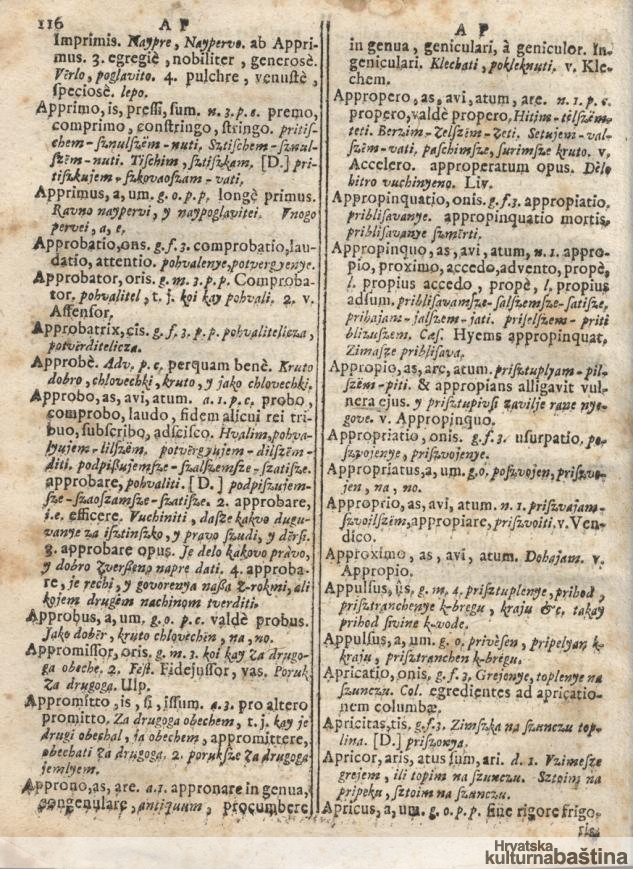 116 A P
Imprimis. Naypre, Naypervo. ab Appri-
mus. 3. egregiè, nobiliter, generosè.
Vèrlo, poglavito. 4. pulchre, venustè,
speciosè. lepo.
Apprimo, is, pressi, sum. n. 3. p. e. premo,
comprimo, constringo, stringo. pritisz-
chem-sznulszëm-nuti. Sztischem-sznul-
szëm-nuti. Tischim, sztiszkam. [D.] pri-
tiszkujem-szkovaoszam-vati.
Apprimus, a, um. g. o. p. p. longè primus.
Ravno naypervi, y naypoglavitei. Vnogo
pervei, a, e.
Approbatio, ons. g. f. 3. comprobatio, lau-
datio, attentio. pohvalenye, potvergyenye.
Approbator, oris. g. m. 3. p. p. Comproba-
tor. pohvalitel, t. j. koi kay pohvali. 2. v.
Assensor.
Approbatrix, cis. g. f. 3. p. p. pohvalitelicza,
potvèrditelicza.
Approbè. Adv. p. c. perquam benè. Kruto
dobro, chlovechki, kruto, y jako chlovechki.
Approbo, as, avi, atum. a. 1. p. c. probo,
comprobo, laudo, fidem alicni rei tri-
buo, subscribo, adscisco. Hvalim, pohva-
lyujem-lilszëm. potvèrgyujem-dilszëm-
diti. podpiszujemsze-szalszemsze-szatisze.
approbare, pohvaliti. [D.] podpiszujem-
sze-szaoszamsze-szatisze. 2. approbare,
i.e. efficere. Vuchiniti, dasze kakvo dugu-
vanye za isztinszko, y pravo szudi, y dèrsi.
3. approbare opus. Je delo kakovo pràvo,
y dobro zversseno napre dati. 4. approba-
re, je rechi, y govorenya nassa z-rokmi, ali
kojem drugëm nachinom tverditi.
Approbus, a, um. g. o. p. c. valdè probus.
Jako dobër, kruto chlovèchën, na, no.
Appromissor, oris. g. m. 3. koi kay za drugo-
ga obeche. 2. Fest. Fidejussor, vas. Poruk
za drugoga. Ulp.
Appromitto, is, si, issum. a. 3. pro altero
promitto. Za drugoga obechem, t. j. kay je
drugi obechal, ja obechem, appromittere,
obechati za drugoga. 2. poruksze za drugoga
jemlyem.
Approno, as, are. a. 1. appronare in genua,
congenulare, antiquum, procumbere
A P
in genua, geniculari, à geniculor. In-
geniculari. Klechati, pokleknuti. v. Kle-
chem.
Appropero, as, avi, atum, are. n. 1. p. c.
propero, valdè propero, Hitim-tèlszëm-
teti. Berzim-zelszëm-zeti. Setujem-val-
szëm-vati, paschimsze, surimsze kruto. v.
Accelero. approperatum opus. Dèlo
hitro vuchinyeno. Liv.
Appropinquatio, onis. g. f. 3. appropiatio,
priblisavanye. appropinquatio mortis,
priblisavanye szmèrti.
Appropinquo, as, avi, atum, n. 1. appro-
pio, proximo, accedo, advento, propè,
l. propius accedo, propè, l. propius
adsum. priblisavamsze-salszemsze-satisze,
prihajam-jalszem-jati. priselszem-priti
blizuszem. Cæs. Hyems appropinquat.
Zimasze priblisava.
Appropio, as, are, atum. prisztuplyam-pil-
szëm-piti. & appropians alligavit vul-
nera ejus. y prisztupivsi zavilje rane nye-
gove. v. Appropinquo.
Appropriatio, onis. g. f. 3. usurpatio, po-
szvojenye, priszvojenye.
Appropriatus, a, um. g. o. poszvojen, priszvo-
jen, na, no.
Approprio, as, avi, atum. n. 1. priszvajam-
szvoilszëm, appropiare, priszvoiti. v. Ven-
dico.
Approximo, as, avi, atum. Dohajam. v.
Appropio.
Appulsus, ûs, g. m. 4. prisztuplenye, prihod,
prisztranchenye k-bregu, kraju &c. takay
prihod sivine k-vode.
Appulsus, a, um. g. o. privèsen, pripelyan k-
kraju, prisztranchen k-bregu.
Apricatio, onis. g. f. 3. Grejenye, toplenye na
szunczu. Col. egredientes ad apricatio-
nem columbæ.
Apricitas, tis, g. f. 3. Zimszka na szunczu top-
lina. [D.] priszonya.
Apricor, aris, atus sum, ari. d. 1. Vzimesze
grejem, ili topim na szunczu. Sztoim na
pripeku, sztoim na szunczu.
Apricus, a, um. g. o. p. p. sine rigore frigo-
ris.
Hrvatska
kulturnabaština